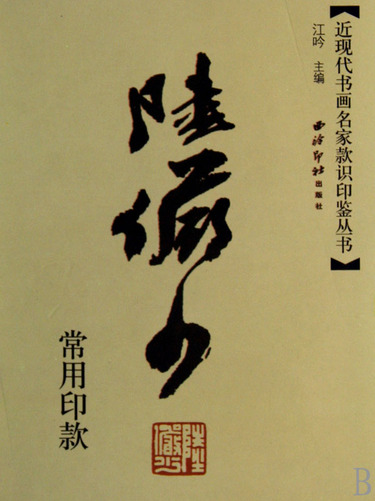 【近现代书画名家款识印鉴丛书】
江吟 主编
西泠印社出版社
陆俨少
常用印款
陆俨少
B